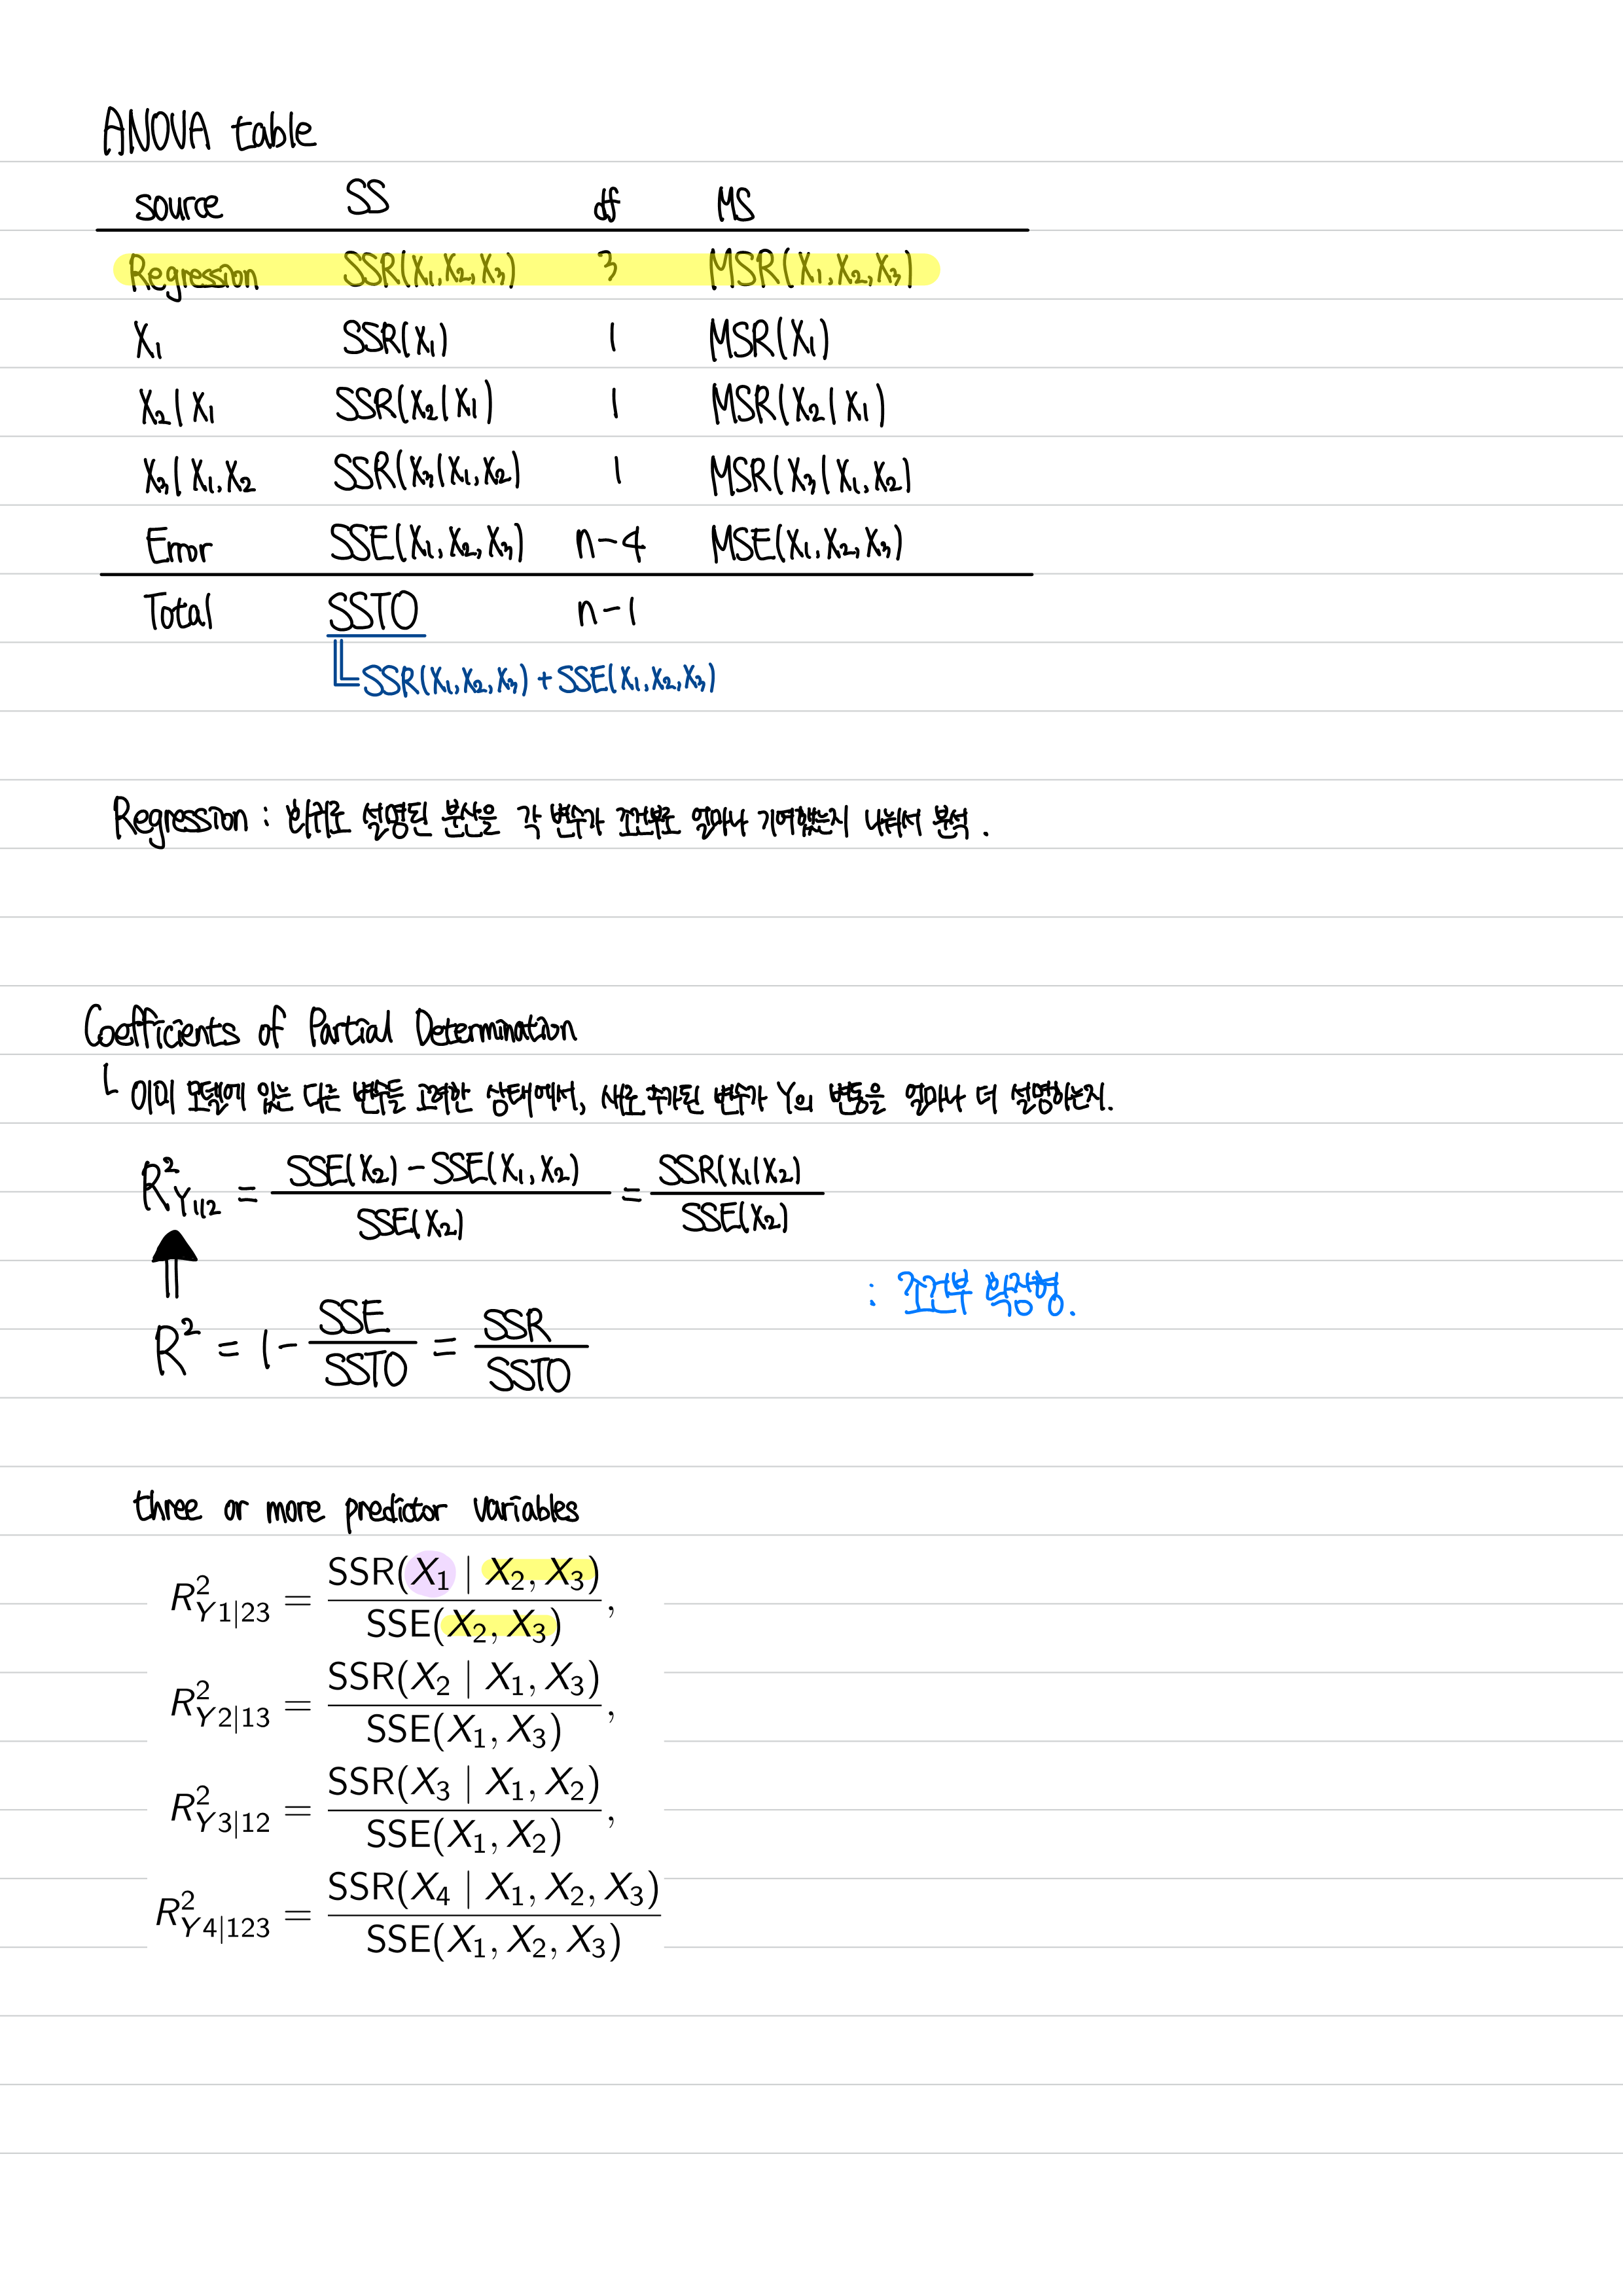 ANOVA table
source SS df MS
Regression SSR(X₁,X₂,X₃) 3 MSR(X₁,X₂,X₃)
X₁ SSR(X₁) 1 MSR(X₁)
X₂|X₁ SSR(X₂|X₁) 1 MSR(X₂|X₁)
X₃|X₁,X₂ SSR(X₃|X₁,X₂) 1 MSR(X₃|X₁,X₂)
Error SSE(X₁,X₂,X₃) n-4 MSE(X₁,X₂,X₃)
Total SSTO n-1
SSR(X₁,X₂,X₃) + SSE(X₁,X₂,X₃)
Regression : 회귀로 설명된 분산을 각 변수가 조건부로 얼마나 기여했는지 나눠서 분석.
Coefficients of Partial Determination
이미 모델에 있는 다른 변수들 고려한 상태에서, 새로 추가된 변수가 Y의 변동을 얼마나 더 설명하는지.
R²_Y1|2 = (SSE(X₂) - SSE(X₁,X₂)) / SSE(X₂) = SSR(X₁|X₂) / SSE(X₂)
: 조건부 확장형.
R² = 1 - SSE/SSTO = SSR/SSTO
three or more predictor variables
R²_Y1|23 = SSR(X₁ | X₂, X₃) / SSE(X₂, X₃),
R²_Y2|13 = SSR(X₂ | X₁, X₃) / SSE(X₁, X₃),
R²_Y3|12 = SSR(X₃ | X₁, X₂) / SSE(X₁, X₂),
R²_Y4|123 = SSR(X₄ | X₁, X₂, X₃) / SSE(X₁, X₂, X₃)